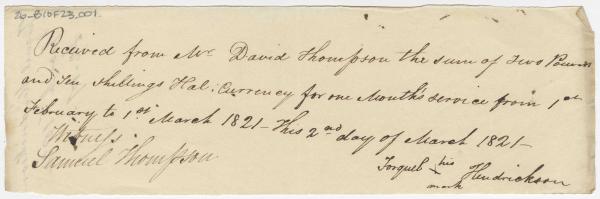 26-B10F23,001.
Received from Mr David Thompson the sum of Two Pounds
and Ten Shillings Hal: Currency for one Month's service from 1st
February to 1st March 1821 - This 2nd day of March 1821 -
Witness
Samuel Thompson
Torquil his Hendrickson
mark